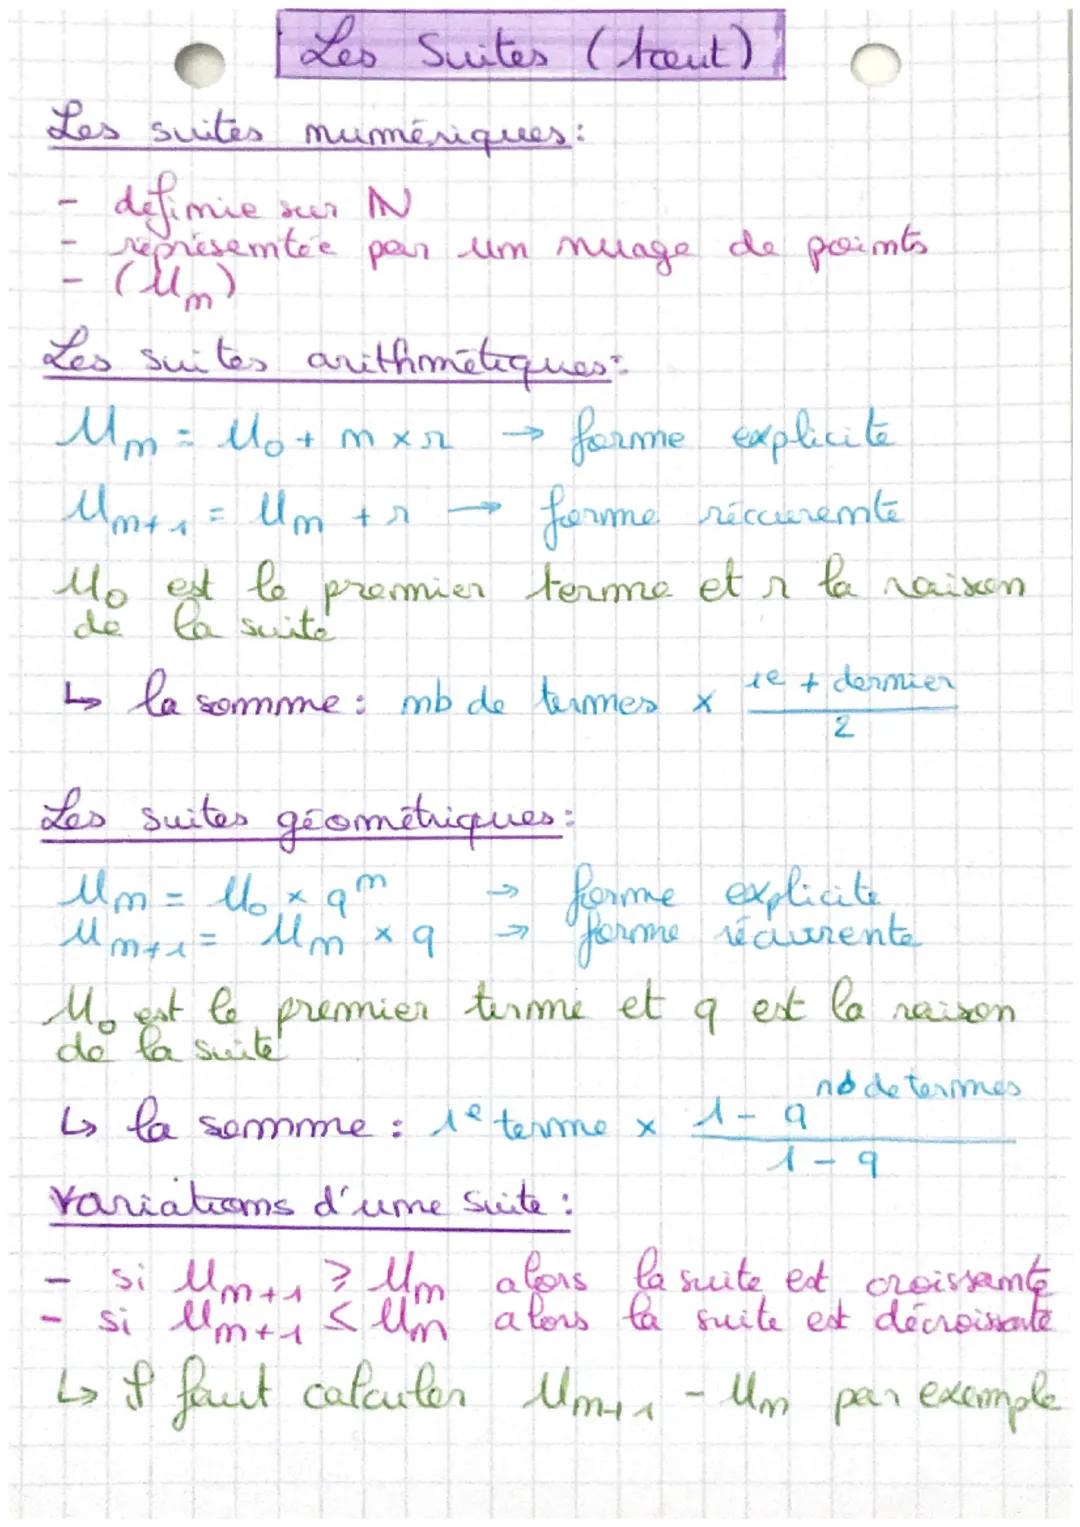 Les Suites (tout)
Les suites numériques :
- définie sur ℕ
- représentée par un nuage de points
- (Un)
Les suites arithmétiques :
Un = U0 + n × r → forme explicite
Un+1 = Un + r → forme réccurente
U0 est le premier terme et r la raison
de la suite
↳ la somme : nb de termes × (1e + dernier)/2
Les suites géométriques :
Un = U0 × q^n → forme explicite
Un+1 = Un × q → forme récurrente
U0 est le premier terme et q est la raison
de la suite
↳ la somme : 1e terme × (1 - q^nb de termes)/(1 - q)
Variations d'une suite :
- si Un+1 ⩾ Un alors la suite est croissante
- si Un+1 ≤ Un alors la suite est décroissante
↳ Il faut calculer Un+1 - Un par exemple